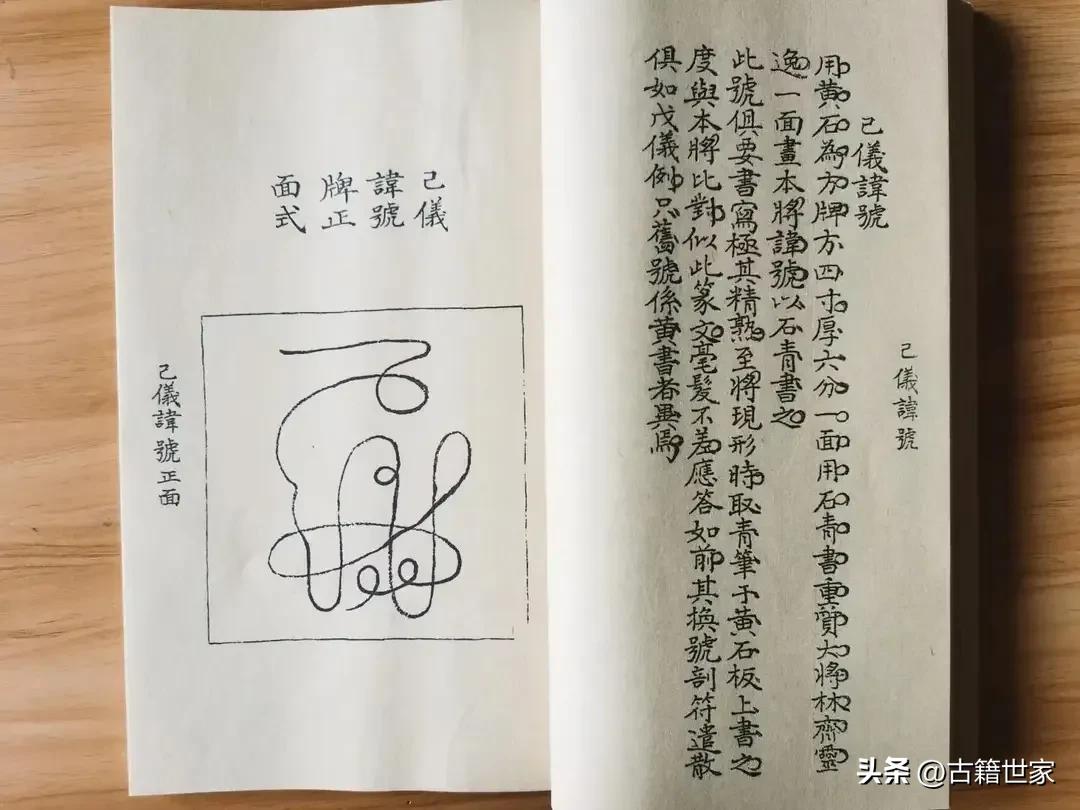 己儀諱號
己儀諱號
用黃石為方牌方四寸厚六分一面用石青書重質大將林齊靈
逸一面畫本將諱號以石青書之
此號俱要書寫極其精熟至將現形時取青筆于黃石板上書之
度與本將比對似此篆文毫髮不差應答如前其換號剖符遣散
俱如戊儀例只舊號係黃書者異焉
己儀
諱號
牌正
面式
己儀諱號正面
头条 @古籍世家